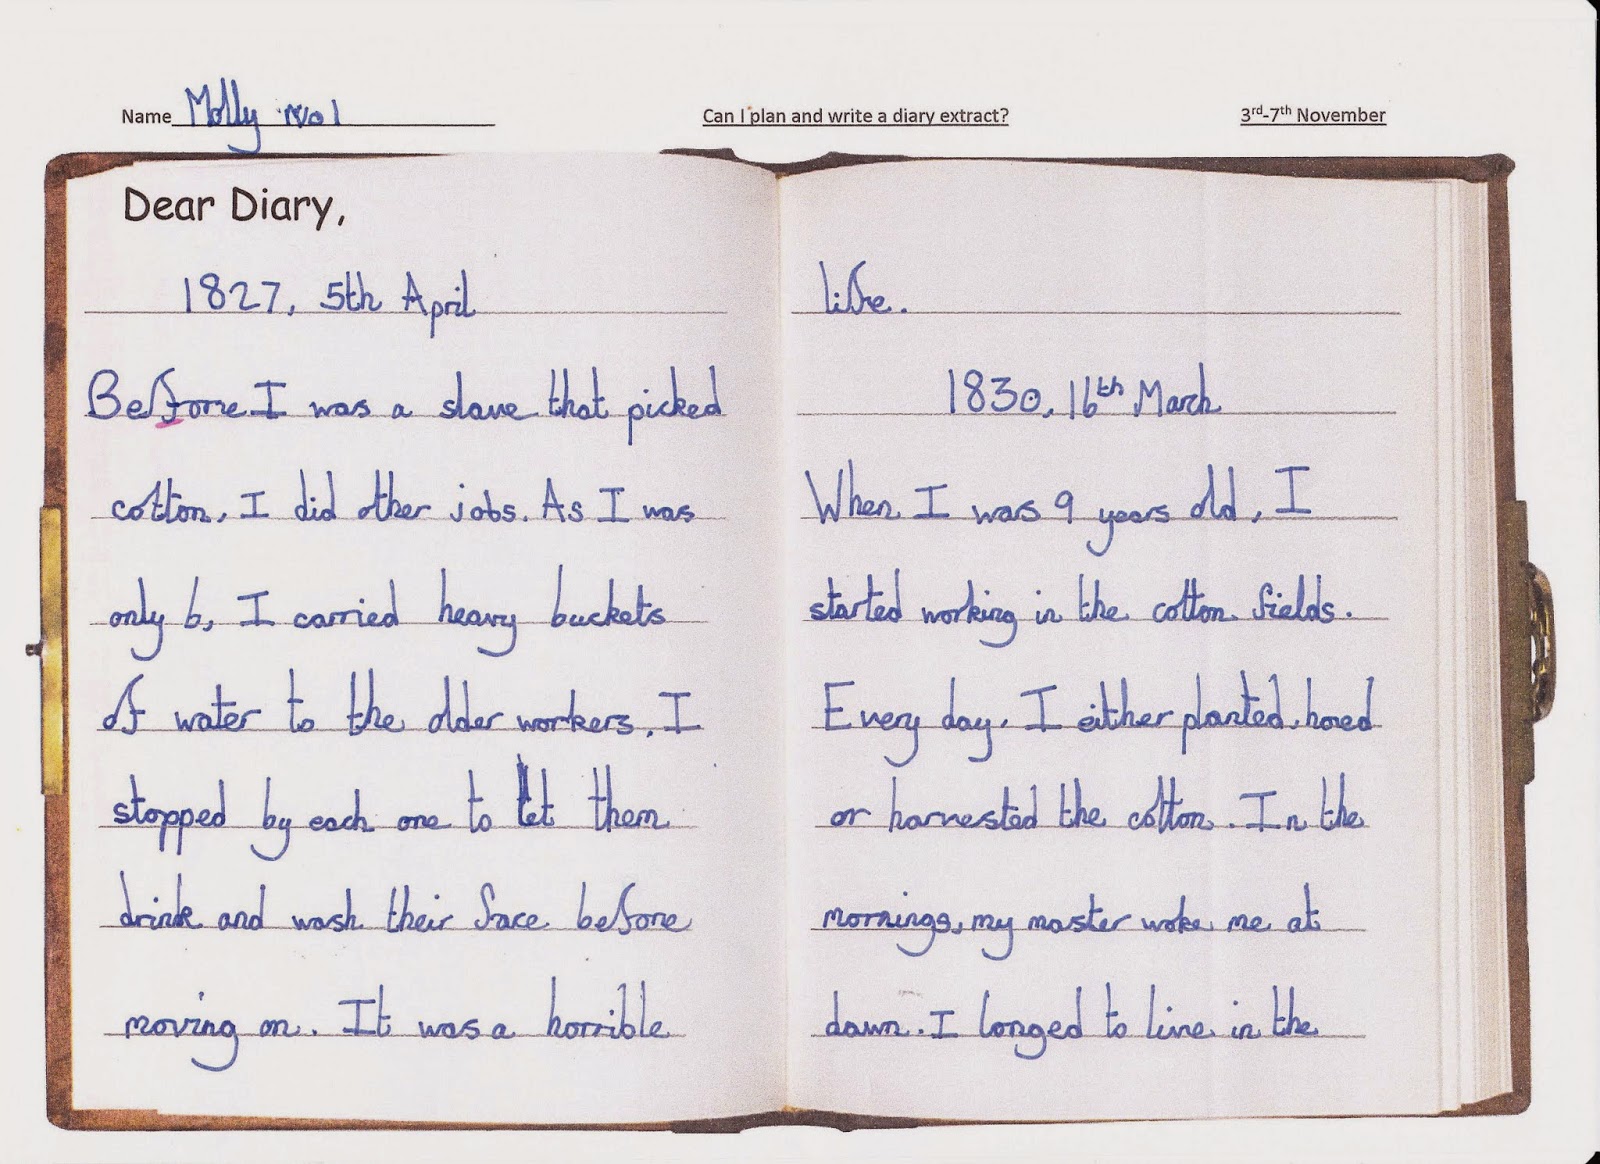 Name Molly No 1
Can I plan and write a diary extract?
3rd-7th November
Dear Diary,
1827, 5th April
Before I was a slave that picked
cotton, I did other jobs. As I was
only 6, I carried heavy buckets
of water to the older workers. I
stopped by each one to let them
drink and wash their face before
moving on. It was a horrible
life.
1830, 16th March
When I was 9 years old, I
started working in the cotton fields.
Every day, I either planted, hoed
or harvested the cotton. In the
mornings, my master woke me at
dawn. I longed to live in the